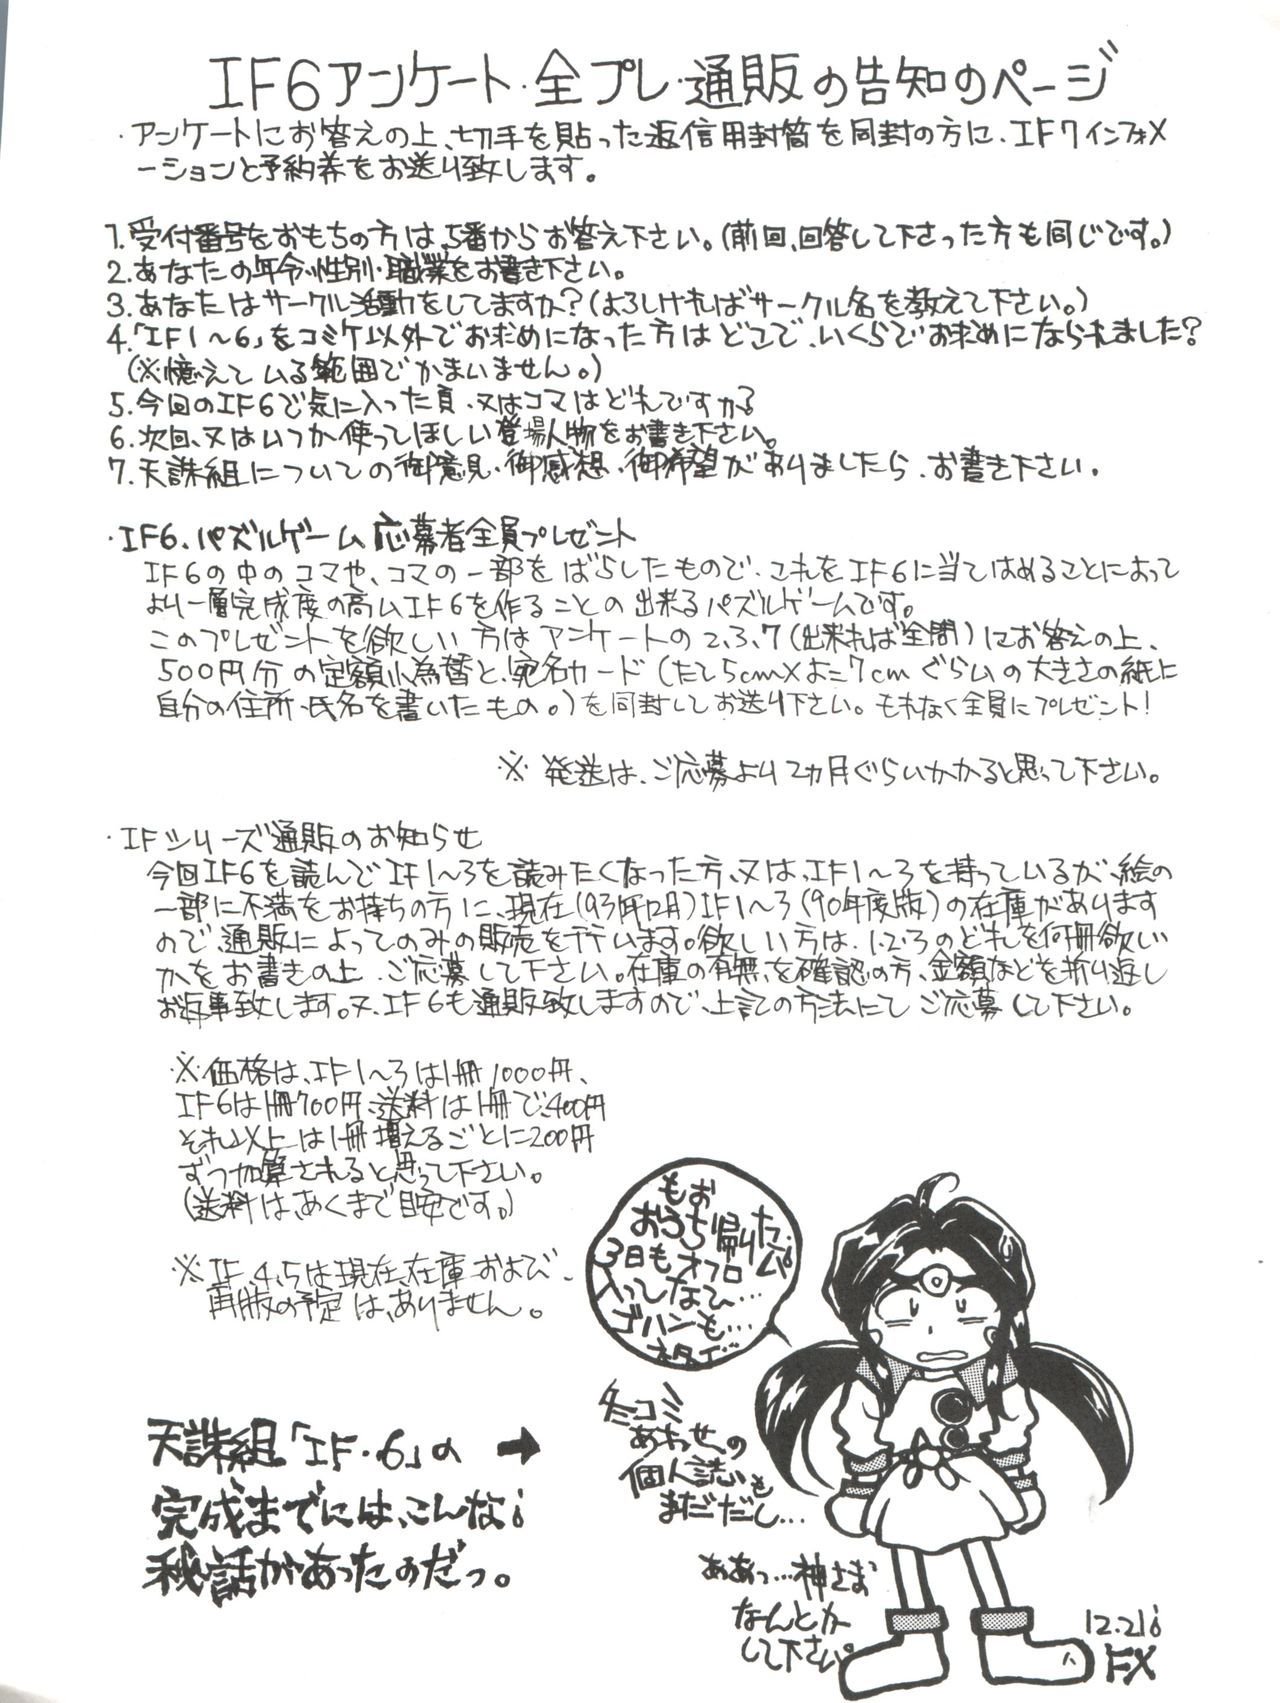 IF6アンケート・全プレ・通販の告知のページ
・アンケートにお答えの上、切手を貼った返信用封筒を同封の方に、IF7インフォメ
ーションと予約券をお送り致します。
1.受付番号をおもちの方は、5番からお答え下さい。(前回、回答して下さった方も同じです。)
2.あなたの年令・性別・職業をお書き下さい。
3.あなたはサークル活動をしてますか?(よろしければサークル名を教えて下さい。)
4.「IF1〜6」をコミケ以外でお求めになった方はどこで、いくらでお求めになられました?
(※憶えている範囲でかまいません。)
5.今回のIF6で気に入った頁、又はコマはどれですか?
6.次回、又はいつか使ってほしい登場人物をお書き下さい。
7.天誅組についての御意見・御感想・御希望がありましたら、お書き下さい。
・IF6、パズルゲーム応募者全員プレゼント
IF6の中のコマや、コマの一部をばらしたもので、これをIF6に当てはめることによって
より一層完成度の高いIF6を作ることの出来るパズルゲームです。
このプレゼントを欲しい方はアンケートの2、3、7(出来れば全問)にお答えの上、
500円分の定額小為替と、宛名カード(たて5cm×よこ7cmぐらいの大きさの紙に
自分の住所・氏名を書いたもの。)を同封してお送り下さい。もれなく全員にプレゼント!
※発送は、ご応募より2ヵ月ぐらいかかると思って下さい。
・IFシリーズ通販のお知らせ
今回IF6を読んでIF1〜3を読みたくなった方、又は、IF1〜3を持っているが、絵の
一部に不満をお持ちの方に、現在(93年12月)IF1〜3(90年度版)の在庫があります
ので、通販によってのみの販売を行います。欲しい方は、1.2.3のどれを何冊欲しい
かをお書きの上、ご応募して下さい。在庫の有無を確認の方、金額などを折り返し
お返事致します。又、IF6も通販致しますので、上記の方法にてご応募して下さい。
※価格は、IF1〜3は1冊1000円、
IF6は1冊700円、送料は1冊で、400円
それ以上は1冊増えるごとに200円
ずつ加算されると思って下さい。
(送料は、あくまで目安です。)
※IF、4、5は現在、在庫および、
再版の予定は、ありません。
もお
おうち帰りた
3日もオフロ
入ってない…
ゴハンも…
冬コミ
あわせの
個人誌も
まだだし…
ああっ…神さま
なんとか
して下さい。
天誅組「IF・6」の →
完成までには、こんな
秘話があったのだっ。
12.21
FX